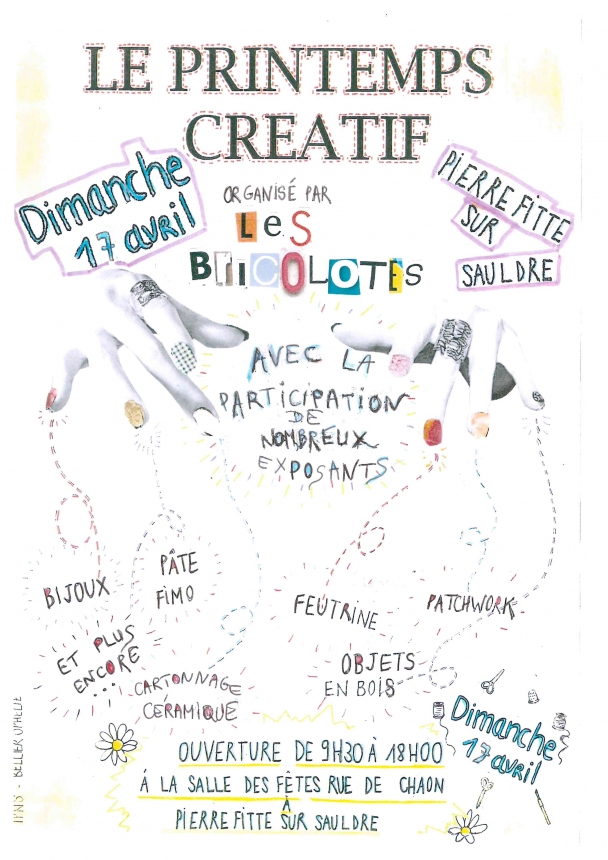 LE PRINTEMPS
CREATIF
Dimanche
17 avril
ORGANISÉ PAR
LeS
BRICOLOTES
PIERREFITTE
SUR
SAULDRE
AVEC LA
PARTICIPATION
DE
NOMBREUX
EXPOSANTS
BIJOUX
PÂTE
FIMO
FEUTRINE
PATCHWORK
ET PLUS
ENCORE
...
CARTONNAGE
CÉRAMIQUE
OBJETS
EN BOIS
Dimanche
17 avril
OUVERTURE DE 9H30 À 18H00
À LA SALLE DES FÊTES RUE DE CHAON
À
PIERREFITTE SUR SAULDRE
BELLIER OPHELIE